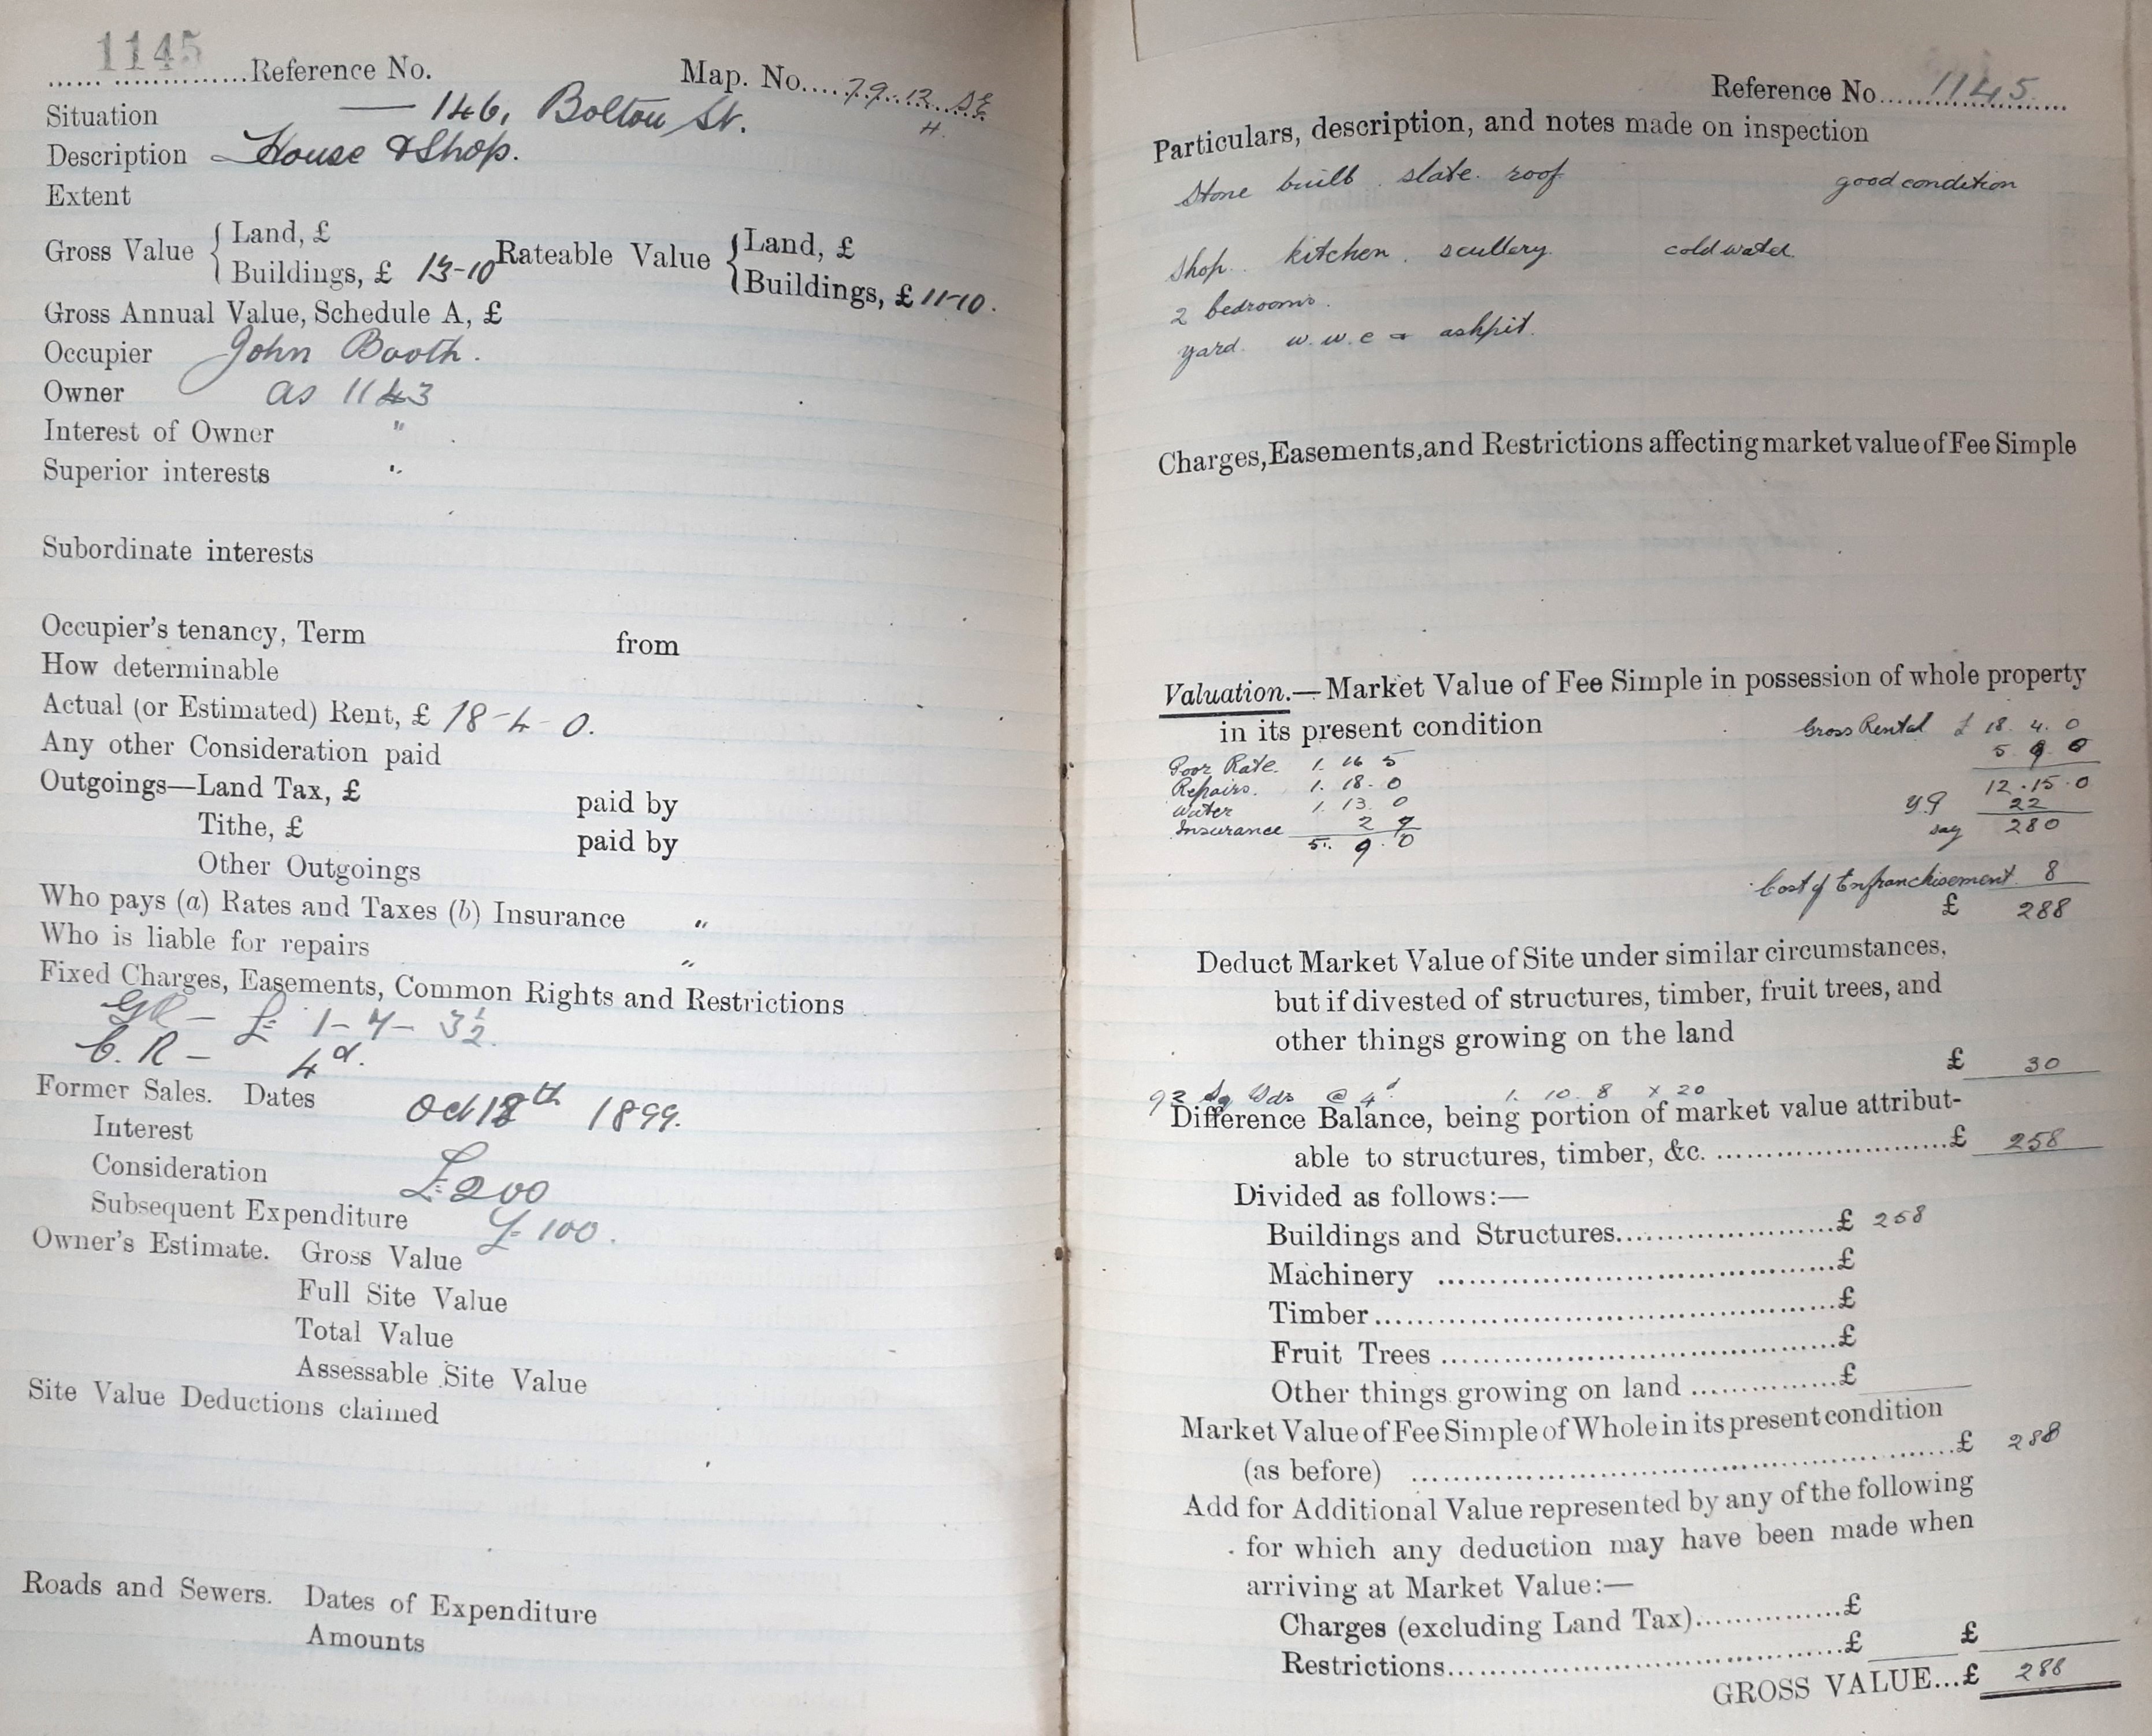 1145
Reference No. Map. No. 79.12 SE
4.
Situation — 146, Bolton St.
Description House & Shop.
Extent
Gross Value { Land, £
Buildings, £ 13-10
Rateable Value { Land, £
Buildings, £ 11-10.
Gross Annual Value, Schedule A, £
Occupier John Booth.
Owner as 1143
Interest of Owner "
Superior interests "
Subordinate interests
Occupier's tenancy, Term from
How determinable
Actual (or Estimated) Rent, £ 18-4-0.
Any other Consideration paid
Outgoings—Land Tax, £ paid by
Tithe, £ paid by
Other Outgoings
Who pays (a) Rates and Taxes (b) Insurance "
Who is liable for repairs "
Fixed Charges, Easements, Common Rights and Restrictions
GR — £ 1-4-3½
C.R — 4d.
Former Sales. Dates Oct 12th 1899.
Interest
Consideration £200
Subsequent Expenditure £100.
Owner's Estimate. Gross Value
Full Site Value
Total Value
Assessable Site Value
Site Value Deductions claimed
Roads and Sewers. Dates of Expenditure
Amounts
Reference No. 1145.
Particulars, description, and notes made on inspection
Stone built. slate roof good condition
Shop. kitchen. scullery. cold water.
2 bedrooms.
yard. w.w.c & ashpit.
Charges, Easements, and Restrictions affecting market value of Fee Simple
Valuation.—Market Value of Fee Simple in possession of whole property
in its present condition Gross Rental £ 18. 4. 0
5. 9. 0
Poor Rate. 1. 16 5
Repairs. 1. 18. 0
Water 1. 13. 0
Insurance 2 7
5. 9. 0
12.15.0
YP 22
say 280
Cost of Enfranchisement 8
£ 288
Deduct Market Value of Site under similar circumstances,
but if divested of structures, timber, fruit trees, and
other things growing on the land
£ 30
92 Sq Yds @ 4d 1. 10. 8 x 20
Difference Balance, being portion of market value attribut-
able to structures, timber, &c. £ 258
Divided as follows:—
Buildings and Structures £ 258
Machinery £
Timber £
Fruit Trees £
Other things growing on land £
Market Value of Fee Simple of Whole in its present condition
(as before) £ 288
Add for Additional Value represented by any of the following
for which any deduction may have been made when
arriving at Market Value:—
Charges (excluding Land Tax) £
Restrictions £ £
GROSS VALUE...£ 288